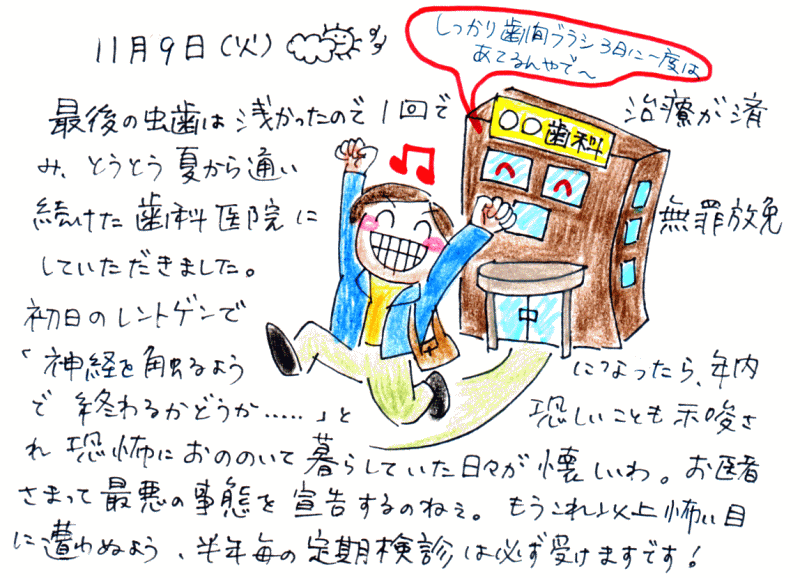 11月9日(火)
しっかり歯間ブラシ3日に一度は
あてるんやで〜
〇〇歯科
最後の虫歯は浅かったので1回で治療が済
み、とうとう夏から通い
続けた歯科医院に無罪放免
していただきました。
初日のレントゲンで
「神経を触るようになったら、年内
で終わるかどうか……」と恐しいことも示唆さ
れ恐怖におののいて暮らしていた日々が懐しいわ。お医者
さまって最悪の事態を宣告するのねぇ。もうこれ以上怖い目
に遭わぬよう、半年毎の定期検診は必ず受けますです!